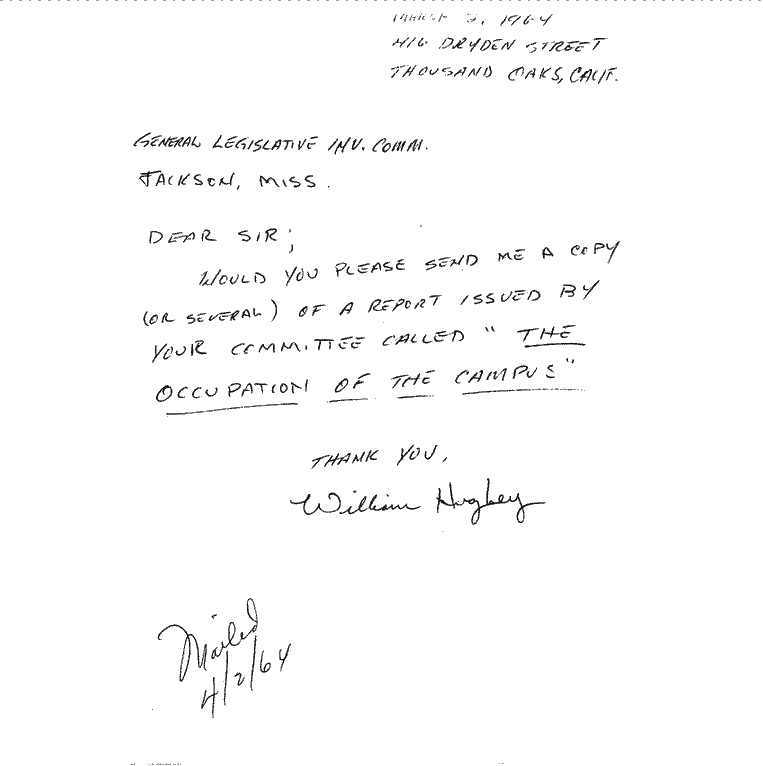 MARCH 2, 1964
416 DRYDEN STREET
THOUSAND OAKS, CALIF.
GENERAL LEGISLATIVE INV. COMM.
JACKSON, MISS.
DEAR SIR;
WOULD YOU PLEASE SEND ME A COPY
(OR SEVERAL) OF A REPORT ISSUED BY
YOUR COMMITTEE CALLED " THE
OCCUPATION OF THE CAMPUS"
THANK YOU,
William Hughey
Mailed
4/2/64